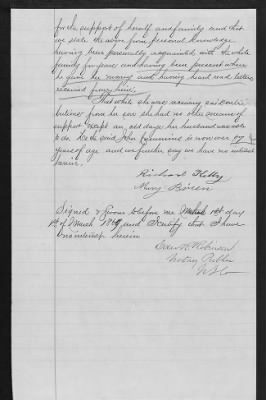 for the support of herself and family and that
we state the above from personal knowledge
having been personally acquainted with the whole
family for years and having been present when
he gave her money and having heard read letters
received from him.
That while she was receiving assistance
believes from her son she had no other means of
support except an old aged her husband was
to do. He the said John is now over
years of age and we further say we have no interest
herein.
Richard Kelly
Mary
Signed & Sworn to before me 1st day
1st of March 18 and I certify that I have
no interest herein
Robinson
Notary Public